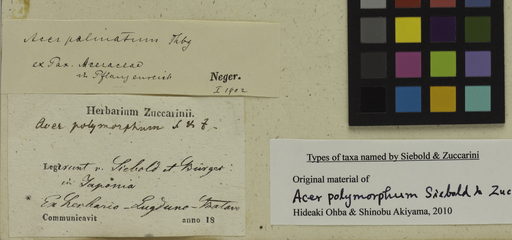 Acer palmatum Thbg
ex Pax. Aceraceae
in Pflanzenreich
Neger.
I 1902
Herbarium Zuccarinii.
Acer polymorphum S & Z.
Legerunt v. Siebold et Bürger
in Japonia
Ex herbario Lugduno-Batav
Communicavit anno 18
Types of taxa named by Siebold & Zuccarini
Original material of
Acer polymorphum Siebold & Zuc
Hideaki Ohba & Shinobu Akiyama, 2010